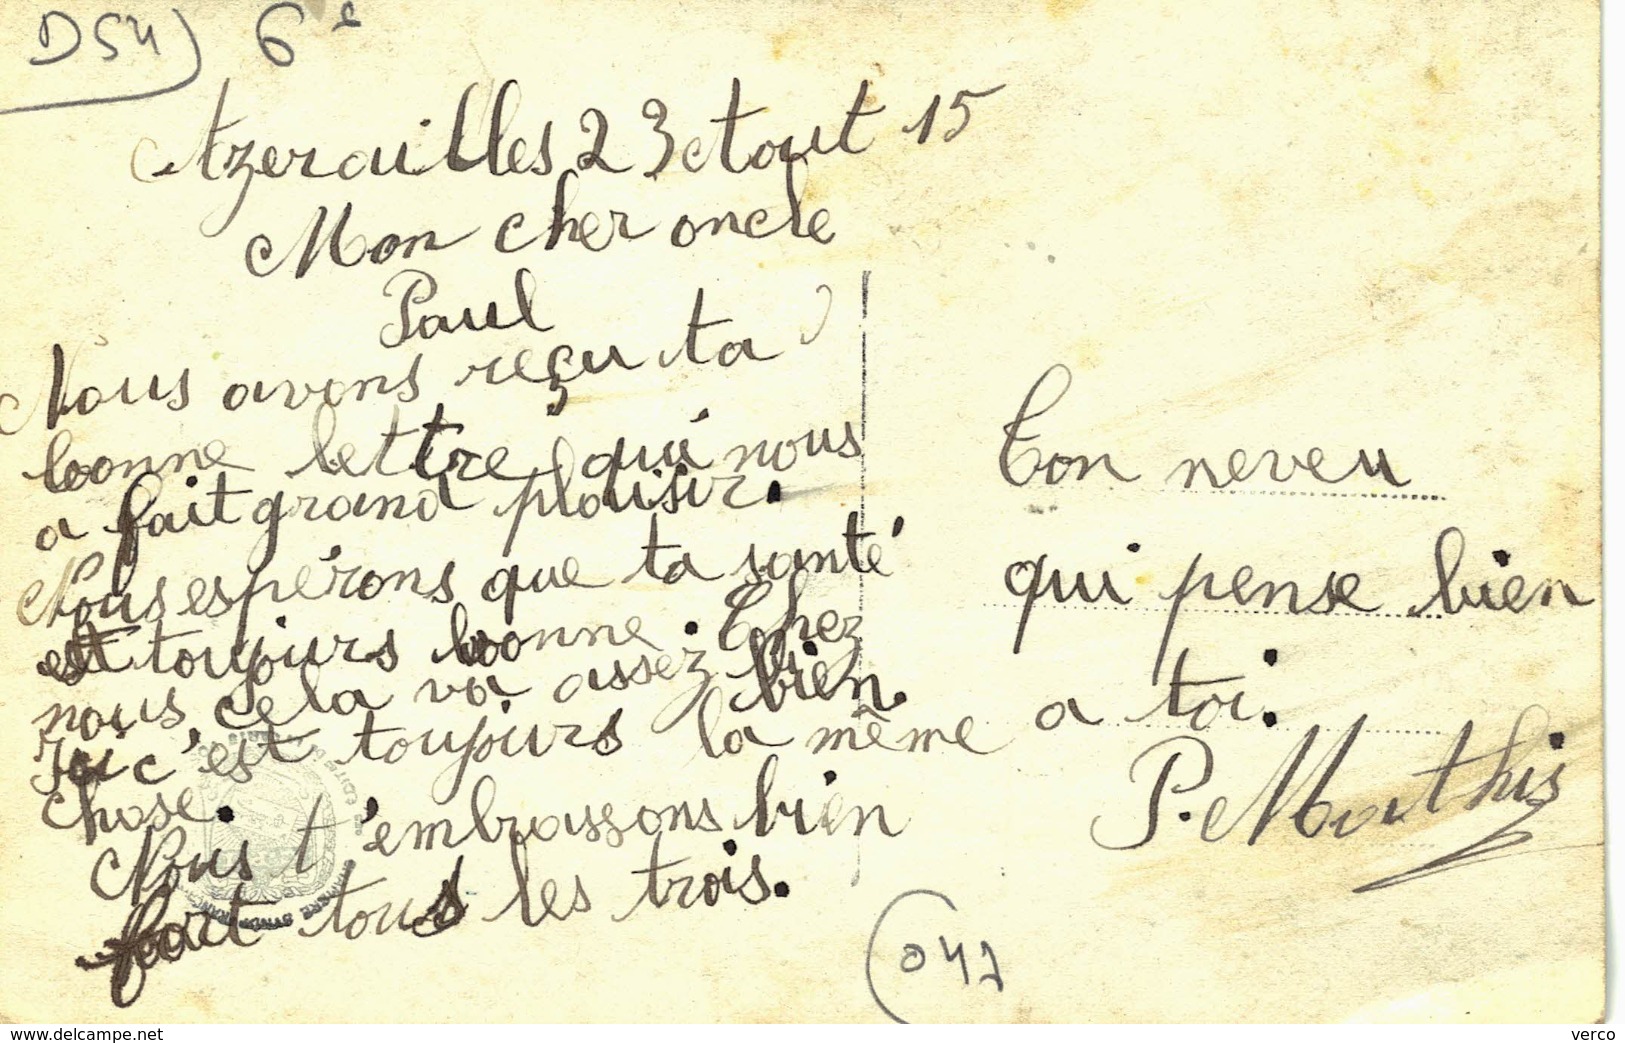 D54) 6e
Azerailles 23 Aout 15
Mon cher oncle
Paul
Nous avons reçu ta
bonne lettre qui nous
a fait grand plaisir.
Nous espérons que ta santé
est toujours bonne. Chez
nous cela va assez bien.
Ici c'est toujours la même
chose.
Nous t'embrassons bien
fort tous les trois.
Ton neveu
qui pense bien
a toi.
P. Marthis
047
www.delcampe.net
verco